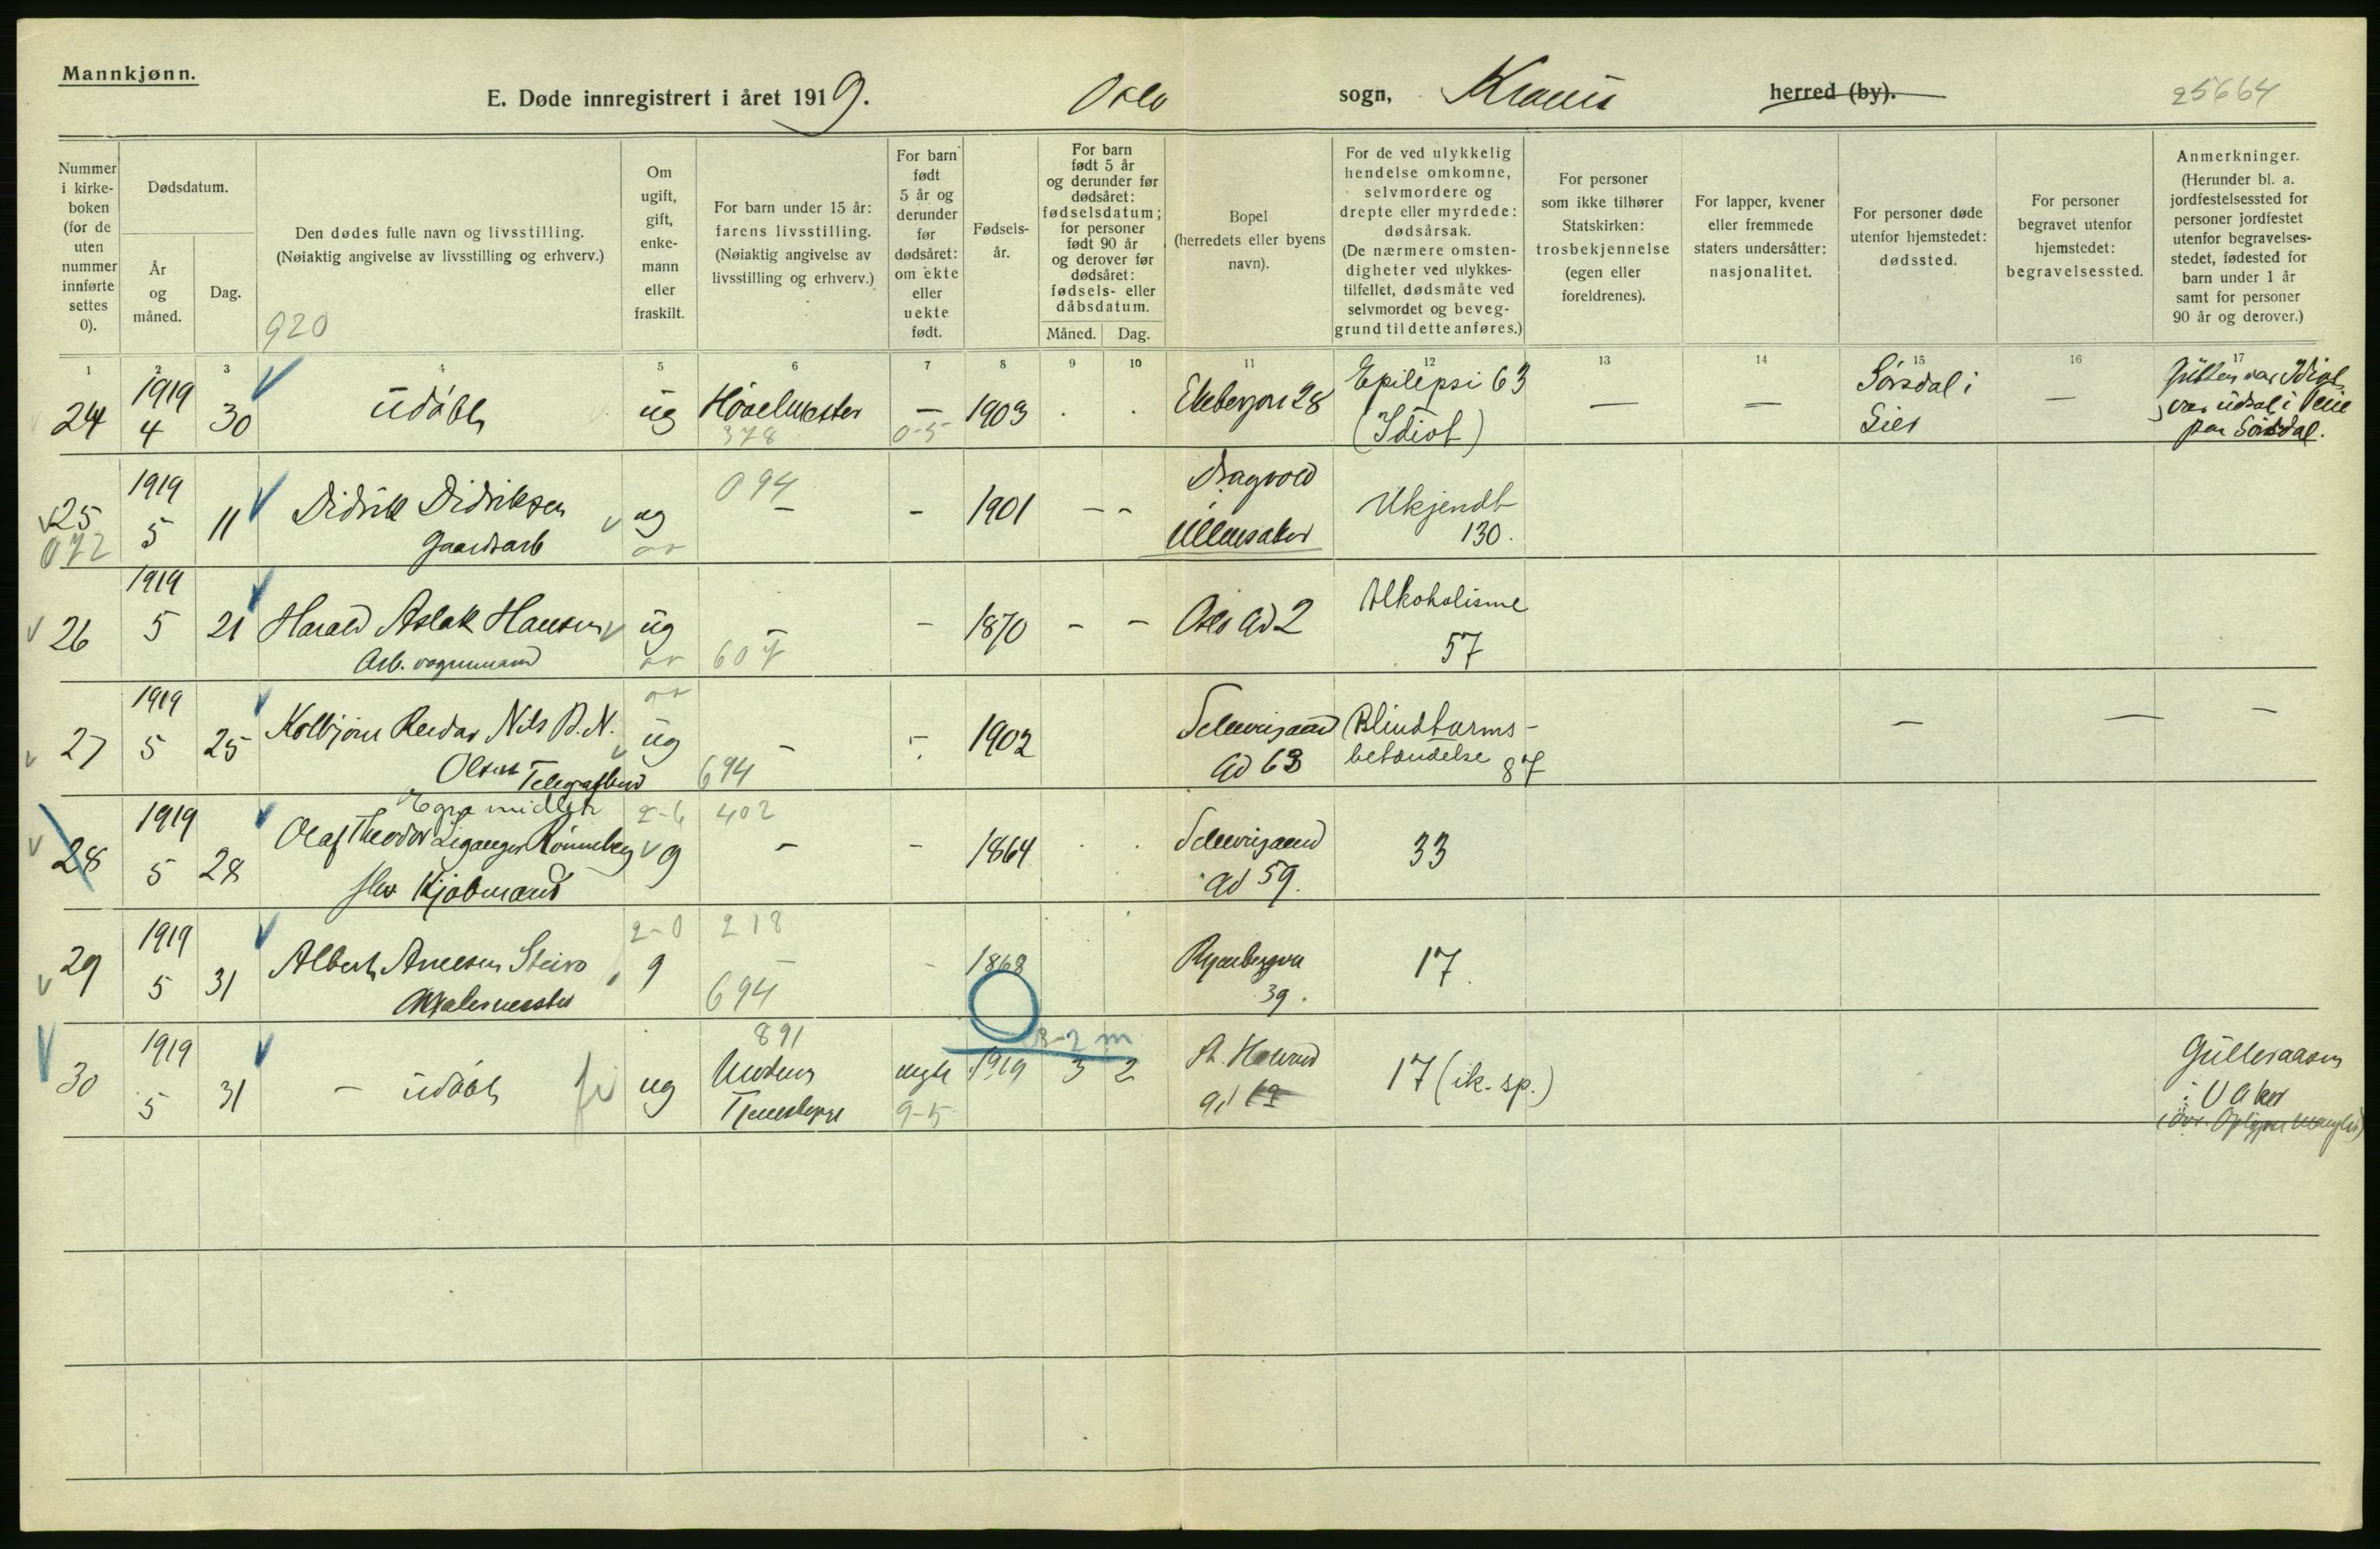 Mannkjønn.
E. Døde innregistrert i året 1919. Oslo sogn, herred (by). 25664
Nummer i kirke-boken (for de uten nummer innførte settes 0).
Dødsdatum.
År og måned.
Dag.
Den dødes fulle navn og livsstilling.
(Nøiaktig angivelse av livsstilling og erhverv.)
920
Om ugift, gift, enke-mann eller fraskilt.
For barn under 15 år: farens livsstilling.
(Nøiaktig angivelse av livsstilling og erhverv.)
For barn født 5 år og derunder før dødsåret: om ekte eller uekte født.
Fødsels-år.
For barn født 5 år og derunder før dødsåret: fødselsdatum; for personer født 90 år og derover før dødsåret: fødsels- eller dåbsdatum.
Måned. Dag.
Bopel
(herredets eller byens navn).
For de ved ulykkelig hendelse omkomne, selvmordere og drepte eller myrdede: dødsårsak.
(De nærmere omsten-digheter ved ulykkes-tilfellet, dødsmåte ved selvmordet og beveg-grund til dette anføres.)
For personer som ikke tilhører Statskirken: trosbekjennelse (egen eller foreldrenes).
For lapper, kvener eller fremmede staters undersåtter: nasjonalitet.
For personer døde utenfor hjemstedet: dødssted.
For personer begravet utenfor hjemstedet: begravelsessted.
Anmerkninger.
(Herunder bl. a. jordfestelsessted for personer jordfestet utenfor begravelses-stedet, fødested for barn under 1 år samt for personer 90 år og derover.)
1 2 3 4 5 6 7 8 9 10 11 12 13 14 15 16 17
24 1919 4 30 udøbt ug 378 — 0-5 1903 28 Epilepsi 63 (Idiot) — — Sørsdal i Lier — Gutten var Idiot,
var udsat i Pleie
paa Sørsdal.
25 072 1919 5 11 Didrik Didriksen ug 094 — - 1901 - - Dragvold i Ullensaker Ukjendt 130.
Gaardsarb
26 1919 5 21 Harald Aslak Hansen ug - 607 - 1870 - - Oslo Gd 2 Alkoholisme 57
Arb. vognmand
27 1919 5 25 Kolbjørn Reidar Nils B. N. ug - 694 - 1902 Gd 63 Blindtarms-
betændelse 87 — — —
Olsen Telegrafbud
28 1919 5 28 Egne midler 2-6 402
Olaf Theodor Rønneberg g - - 1864 Gd 59. 33
Kjøbmand
29 1919 5 31 Albert Steiro 2-0 218 g - 694 - 1868 39. 17.
Malermester
30 1919 5 31 - udøbt ug 891 Moderen 9-5 1919 3 2 8-2 m Gd 17 (ik. sp.)
i V Aker